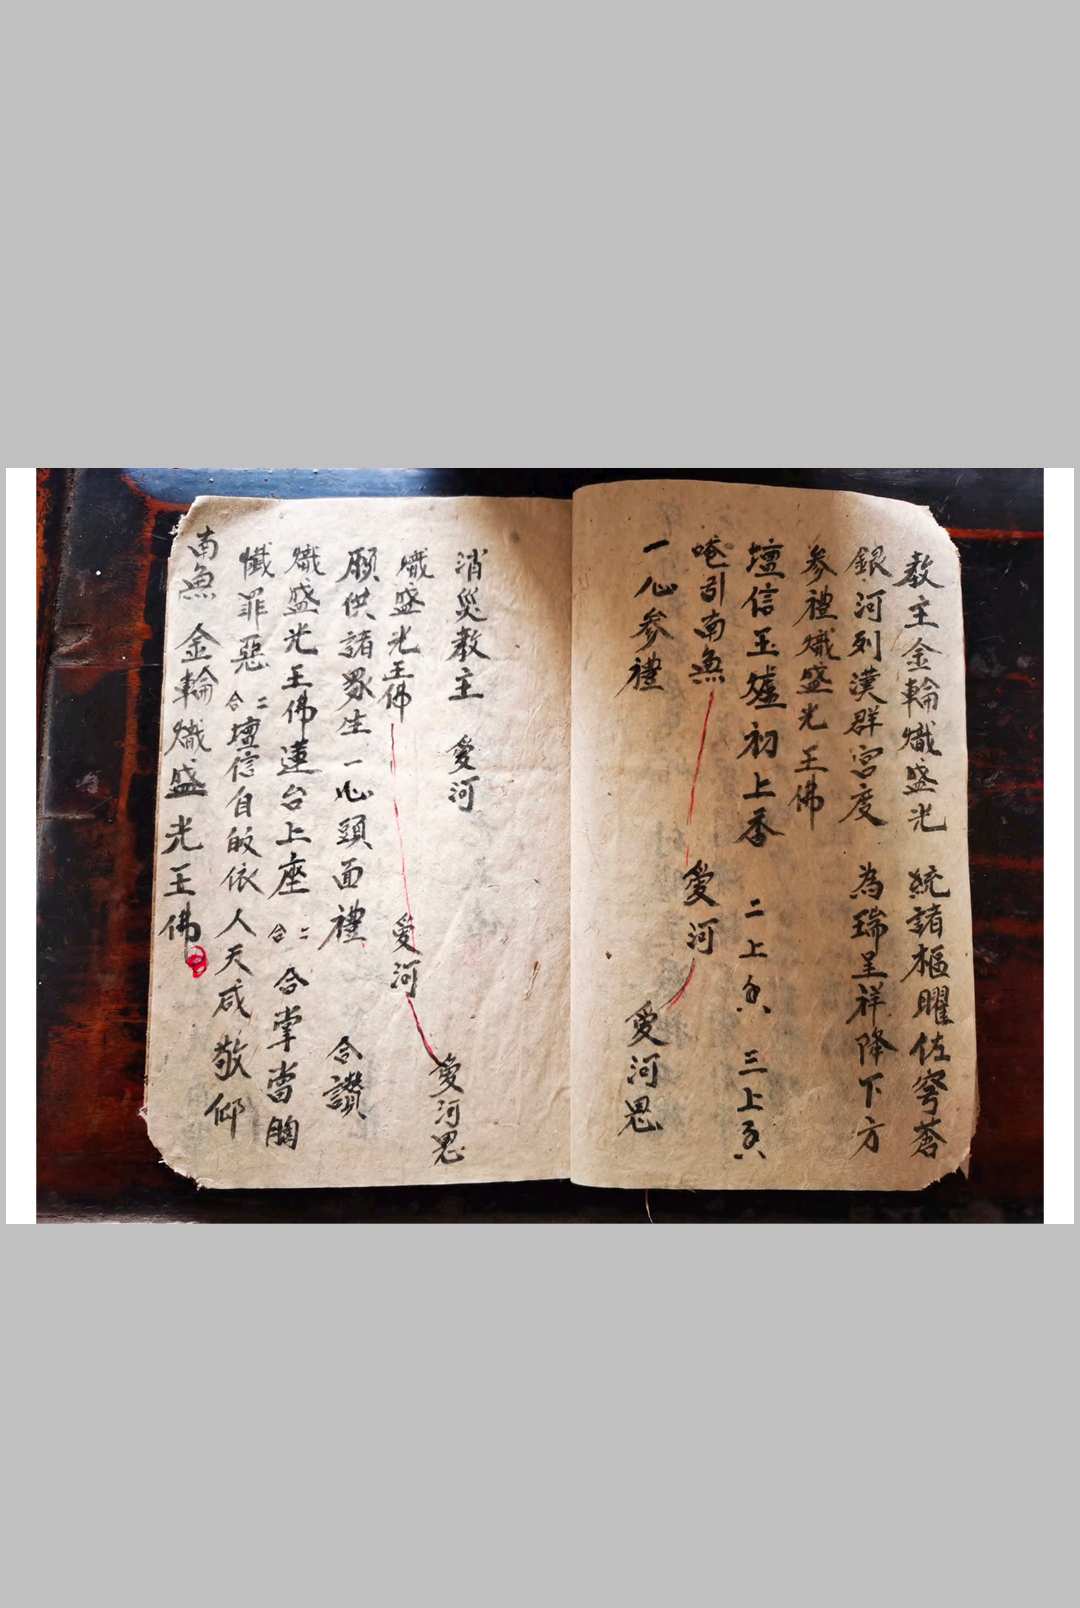 教主金輪熾盛光 統諸樞曜佐穹蒼
銀河列漢群宮度 為瑞呈祥降下方
參禮熾盛光王佛
壇信玉爐初上香 二上香 三上香
唵引南無 愛河
一心參禮 愛河思
消災教主 愛河
熾盛光王佛 愛河 愛河思
願供諸眾生一心頭面禮 合讚
熾盛光王佛蓮台上座 二合 合掌當胸
懺罪惡 二合 壇信自皈依人天咸敬仰
南無 金輪熾盛光王佛